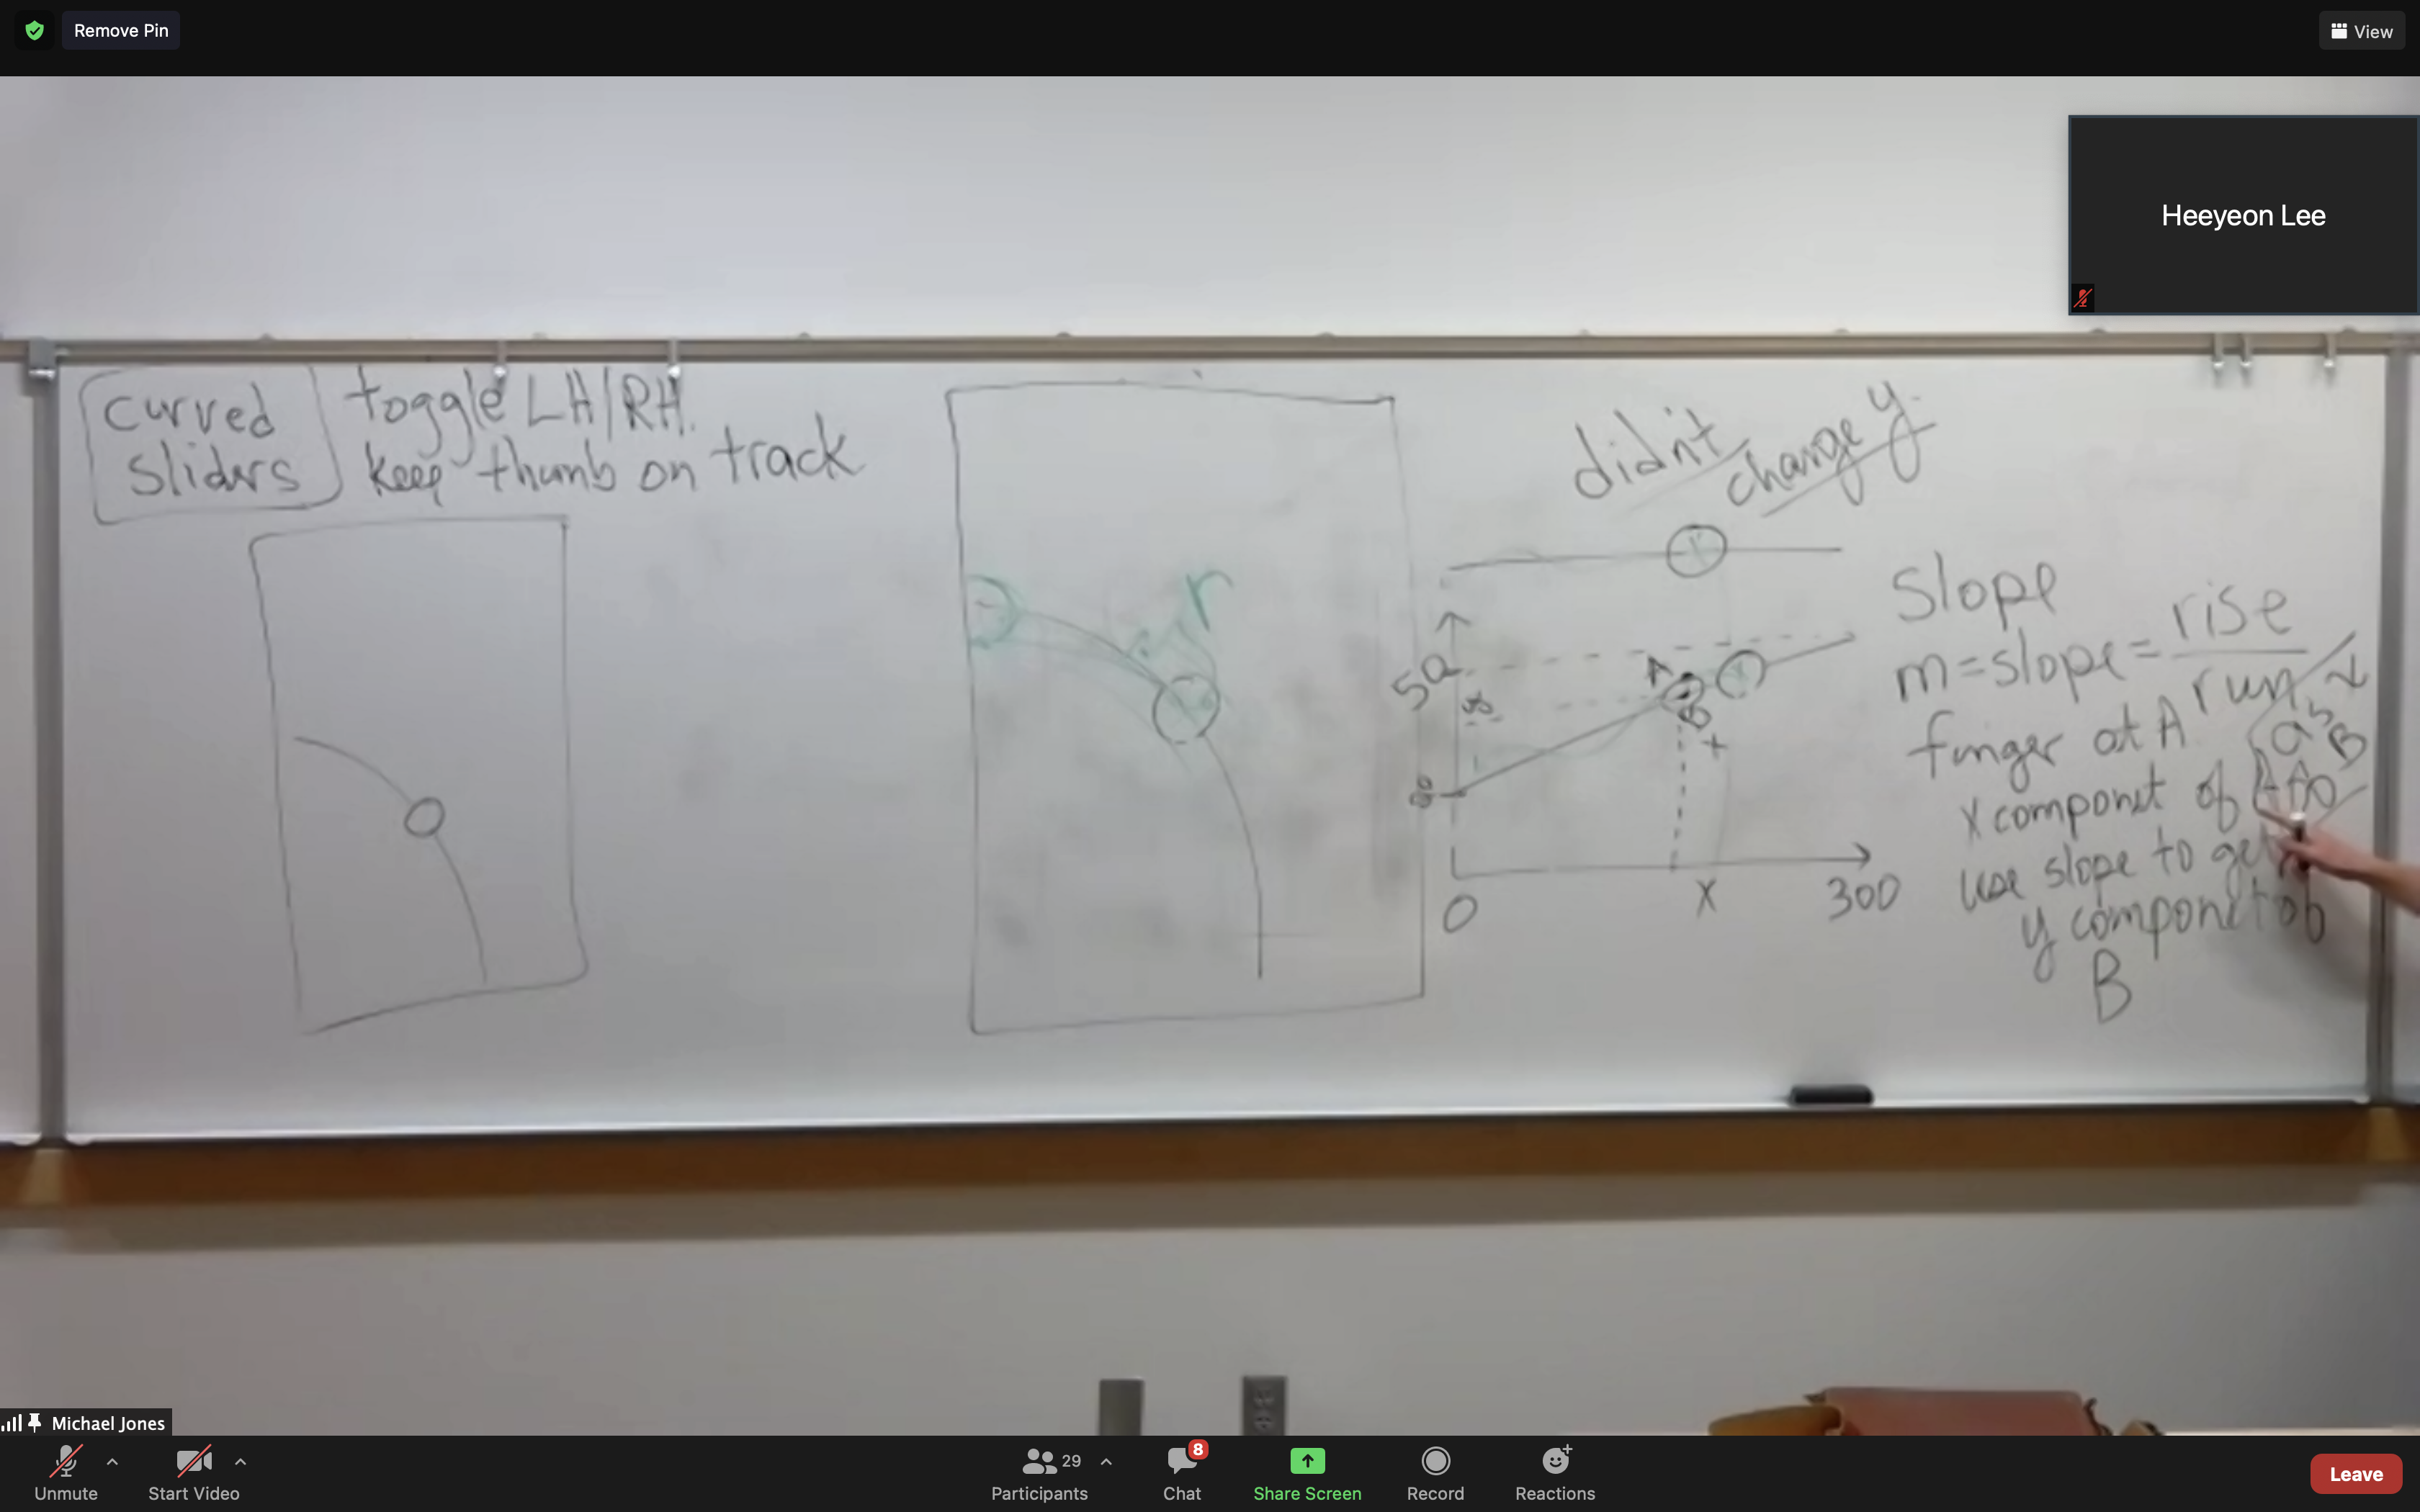 Remove Pin
View
Heeyeon Lee
curved
sliders
toggle LH/RH.
keep thumb on track
r
didn't
change y.
50
A
B
0
X
300
Slope
m=slope=rise
run
finger at A
as
B
X componet of A
use slope to get
y componet of
B
Michael Jones
Unmute
Start Video
29
Participants
8
Chat
Share Screen
Record
Reactions
Leave